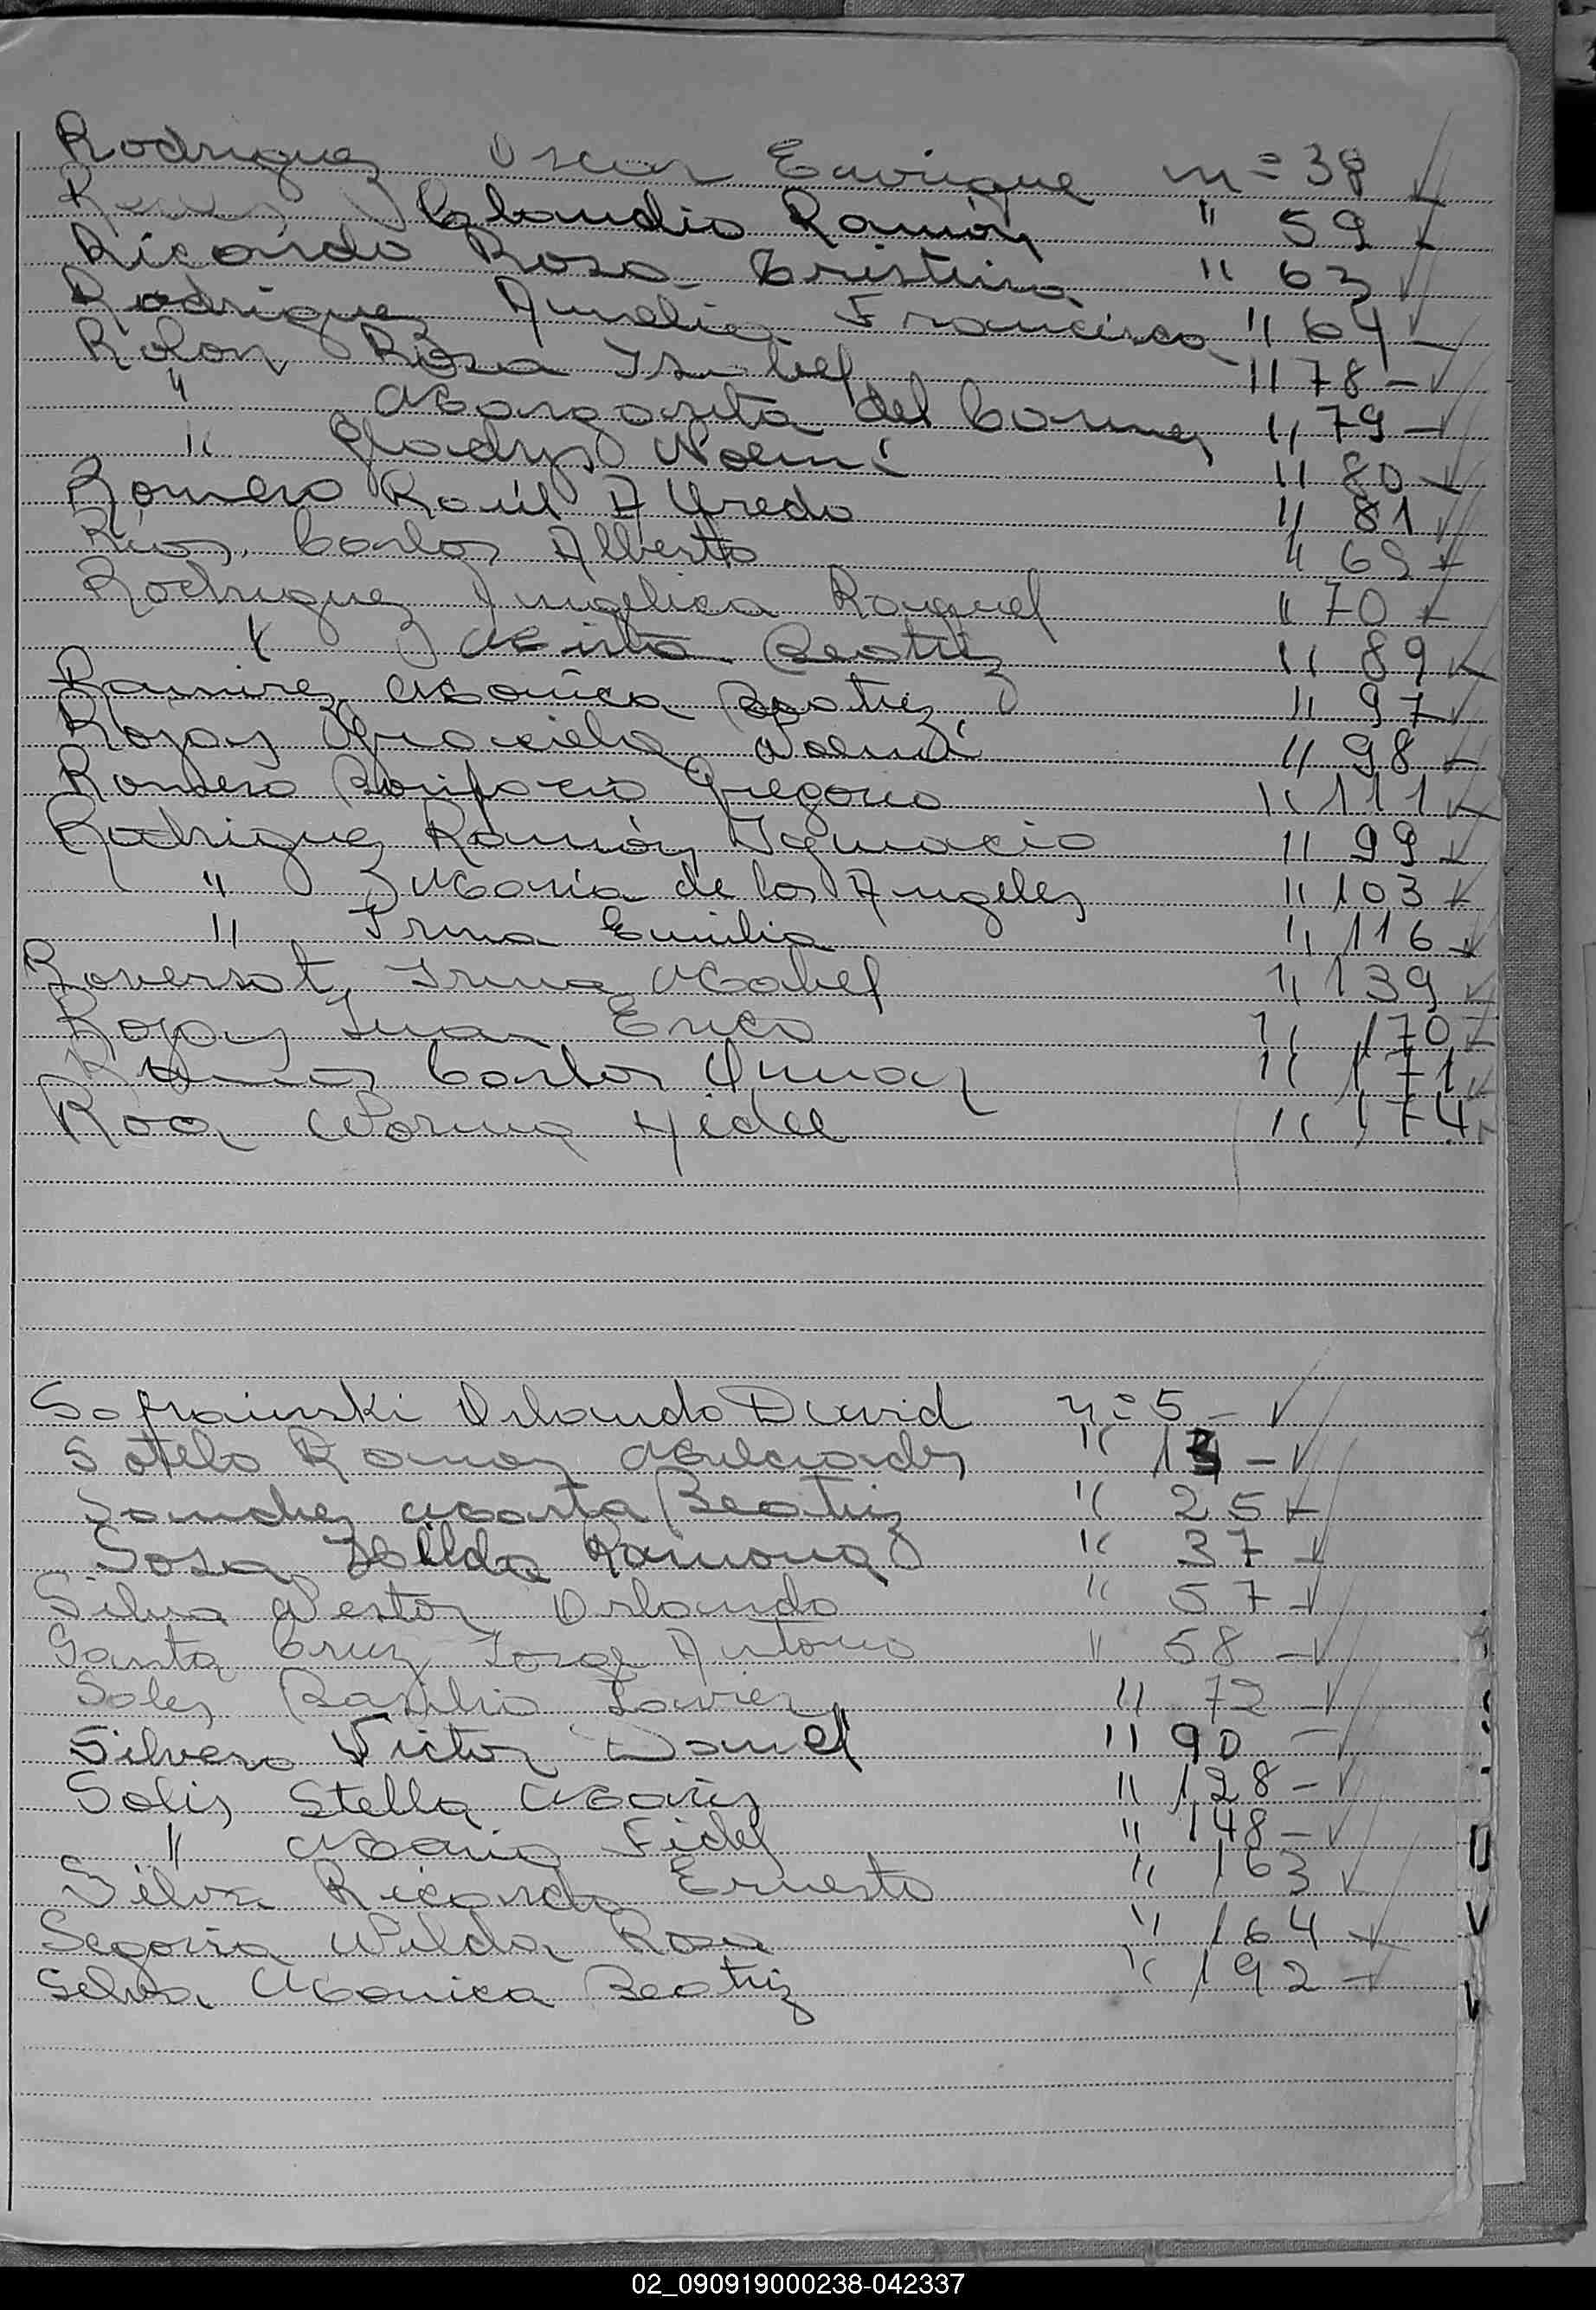 Rodriguez Oscar Enrique n= 38
Claudio Ramón " 59
Ricardo Rosa Cristina " 63
Rodriguez Amalia Francisca " 64
Rolon, Rosa Isabel " 78 -
" Margarita del Carmen " 79 -
" Gladys Noemí " 80 -
Romero Raúl Alfredo " 81
Rios, Carlos Alberto " 69 -
Rodriguez Angelica Raquel " 70 -
" Mirta Beatriz " 89 -
Ramirez Monica Beatriz " 97 -
Rojas Graciela Noemí " 98 -
Romero Bonifacio Gregorio " 111 -
Rodriguez Ramón Ignacio " 99 -
" Maria de los Angeles " 103 -
" Irma Emilia " 116 -
Roversat, Irma Mabel " 139
Rojas Juan Erico " 170
Ramos Carlos Omar " 171
Roa Norma Hidee " 174
Safrainski Orlando David n= 5 -
Sotelo Ramon Melciades " -
Sanchez Marta Beatriz " 25 -
Sosa Hilda Ramona " 37 -
Silva Nestor Orlando " 57 -
Santa Cruz Jorge Antonio " 58 -
Soles Basilio Javier " 72 -
Silvero Victor Daniel " 90 -
Solis Stella Maris " 128 -
" Maria Fidel " 148 -
Silva Ricardo Ernesto " 163
Segovia Nilda Rosa " 164 -
Silva, Monica Beatriz " 192 -
02_090919000238-042337